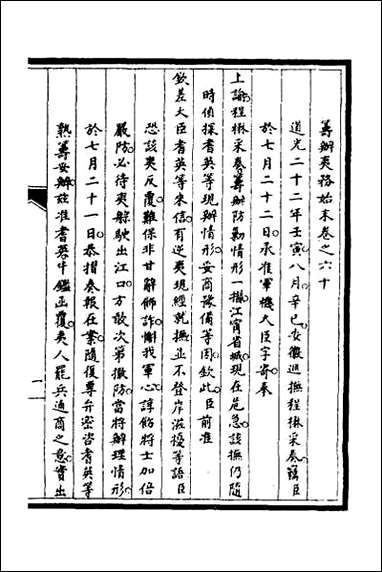 籌辦夷務始末卷之六十
道光二十二年壬寅八月辛巳安徽巡撫程楙采奏竊臣
於七月二十二日承准軍機大臣字寄奉
上諭程楙采奏籌辦防勦情形一摺江甯省城現在危急該撫仍隨
時偵探耆英等現辦情形妥商豫備等因欽此臣前准
欽差大臣耆英等來信有逆夷現經就撫並不登岸滋擾等語臣
恐該夷反覆難保非甘辭餂詐懈我軍心諄飭將士加倍
嚴防必待夷艘駛出江口方敢次第撤防當將辦理情形
於七月二十一日恭摺奏報在案隨復專弁密咨耆英等
熟籌妥辦茲准耆英牛鑑函覆夷人罷兵通商之意實出
一